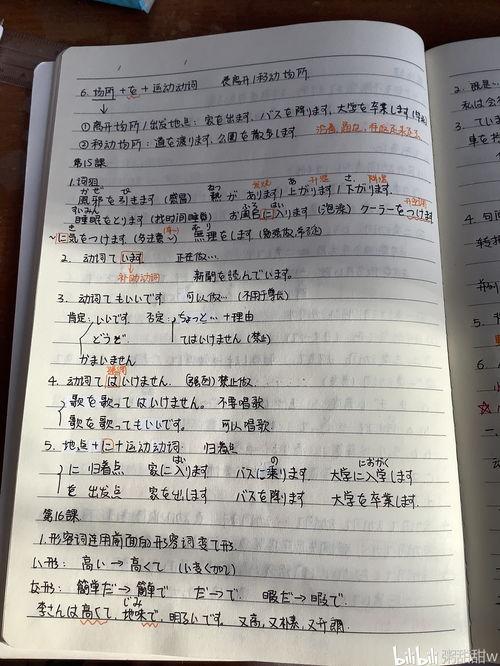 6. 场所+を+运动动词 表离开/移动场所.
①离开场所/出发地点: 家を出ます、バスを降ります、大学を卒業します
②移动场所: 道を渡ります、公園を散歩します
第15課
1. 词组
かぜ ひ ねつ 发烧 あ 升温 さ 降温
風邪を引きます (感冒) 熱があります/上がります/下がります.
すいみん ふろ はい 开空调
睡眠をとります (找时间睡觉) お風呂に入ります (泡澡) クーラーをつけます
~に気をつけます (多注意~) 無理をします
2. 动词て います 正在做…
补助动词 新聞を読んでいます。
3. 动词てもいいです 可以做… (不用于尊长)
肯定: いいです 否定: ちょっと…+理由
どうぞ てはいけません (禁止)
かまいません
4. 动词て はいけません. (强烈) 禁止做…
歌を歌って はいけません. 不要唱歌
歌を歌ってもいいです. 可以唱歌.
5. 地点+に+运动动词: 归着点
はい の
に 归着点 家に入ります バスに乗ります 大学に入学します
を 出发点 家を出します バスを降ります 大学を卒業します.
第16課
1. 形容词连用前面的形容词变て形.
い形: 高い→高くて (いきくがて)
な形: 簡単だ→簡単で だ→で. 暇だ→暇で.
じみ
李さんは高くて、地味で、明るいです。 又高,又朴素,又开朗.
bilibili